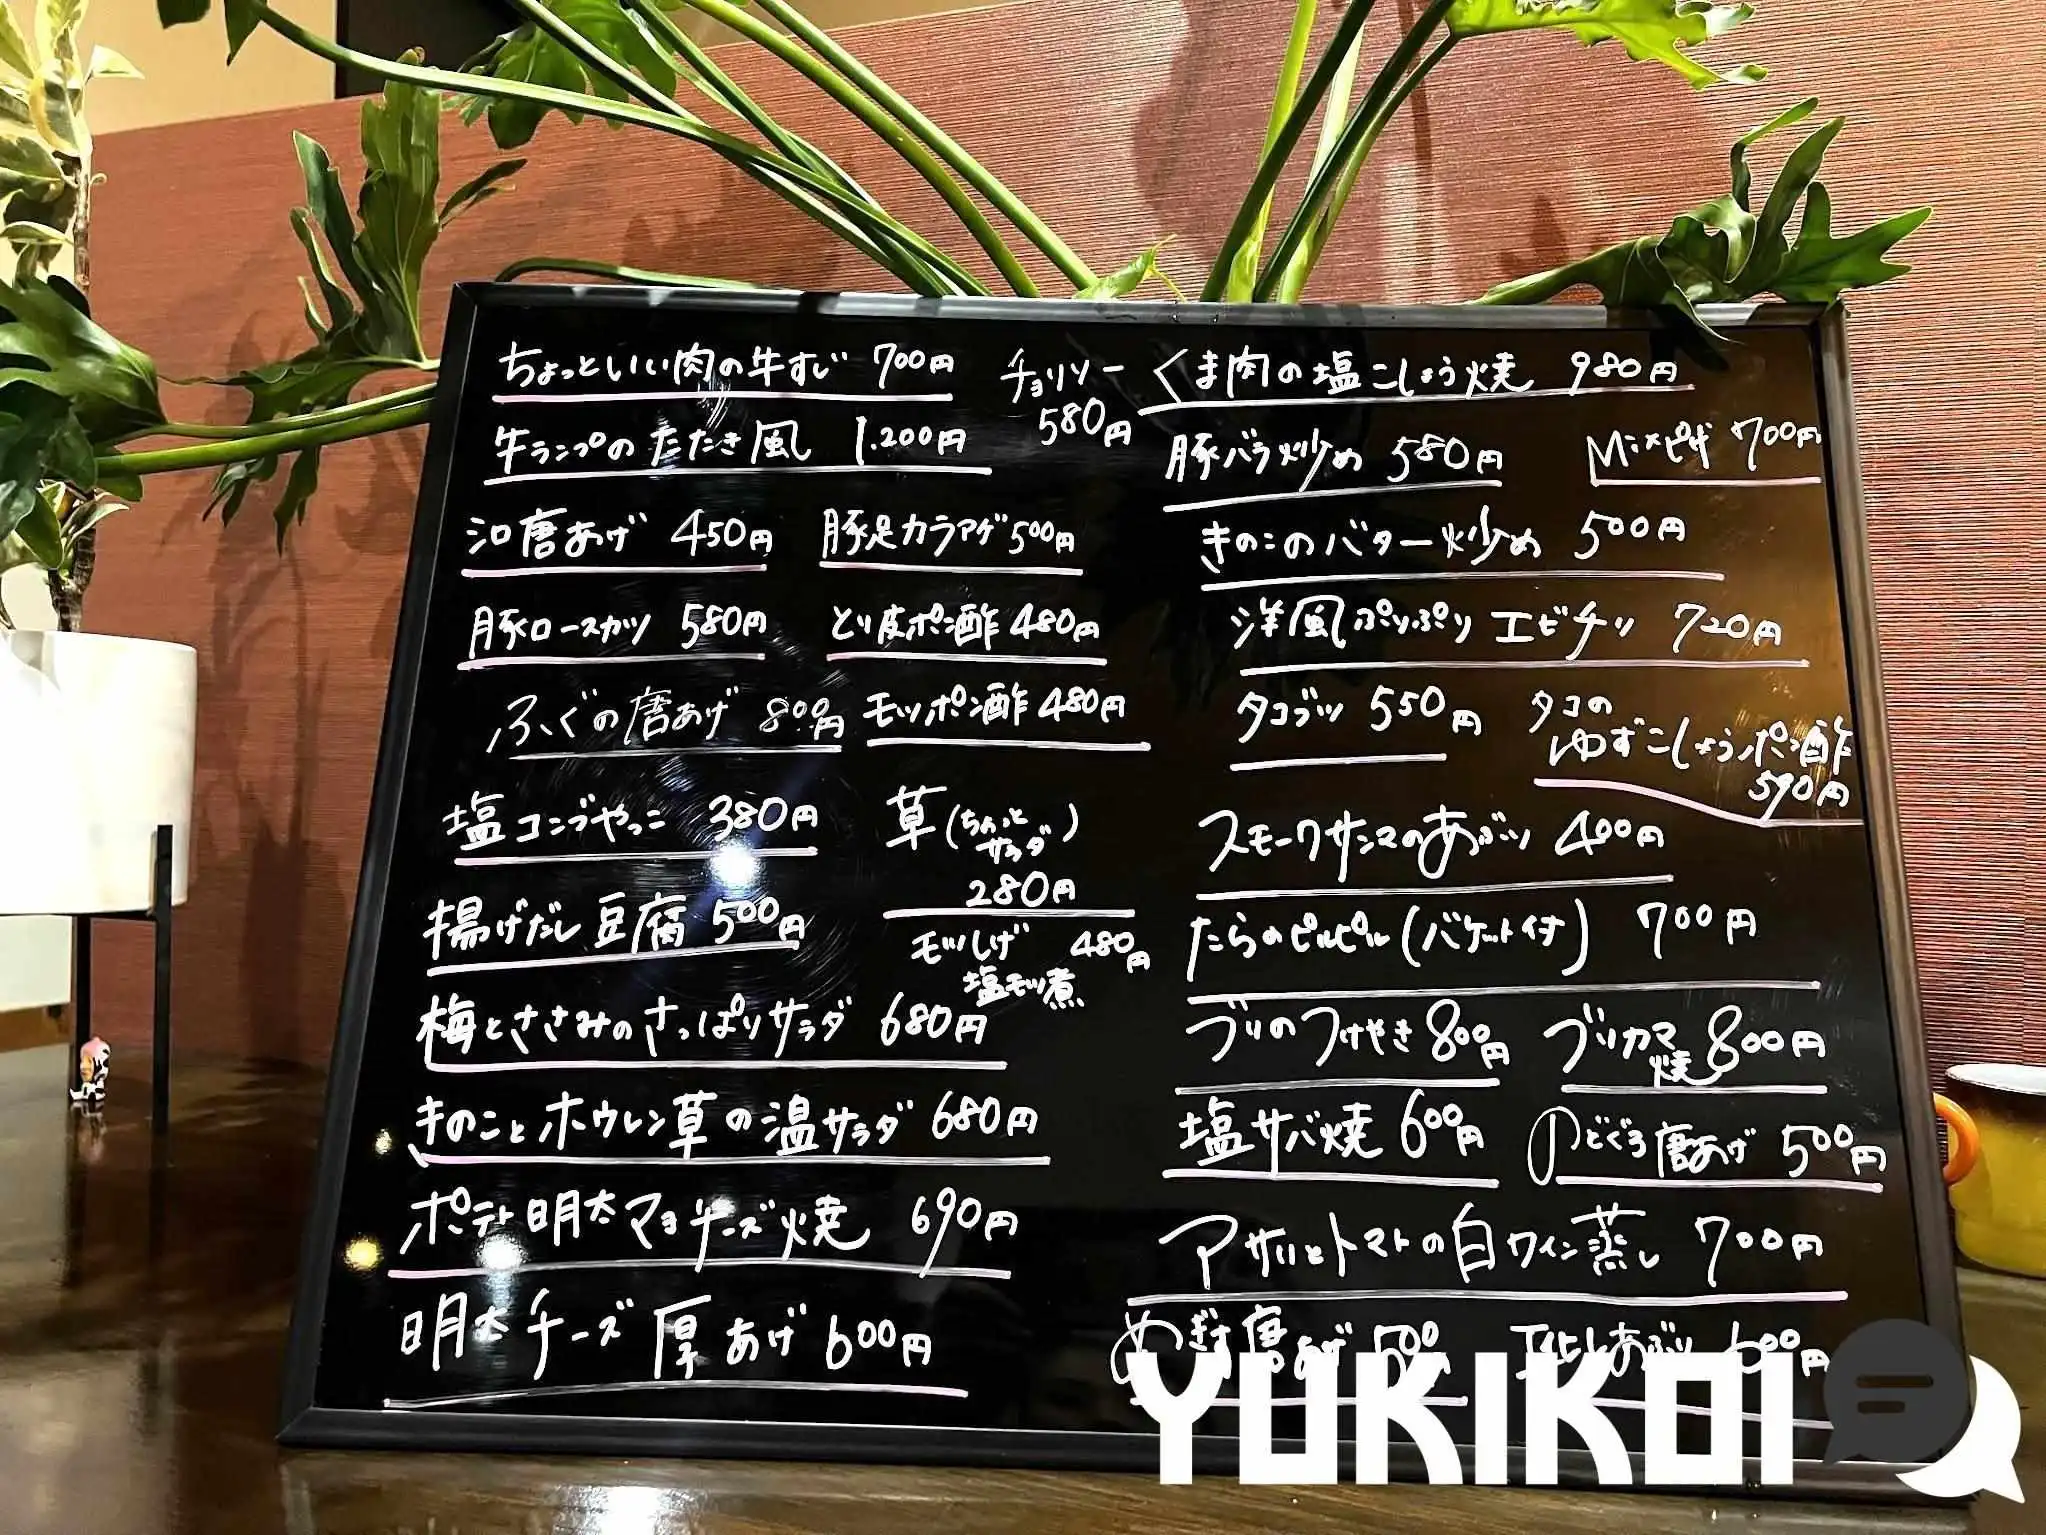 ちょっといい肉の牛すじ 700円
チョリソー
580円
くま肉の塩こしょう焼 980円
牛ランプのたたき風 1.200円
豚バラ炒め 580円
Mixピザ 700円
唐あげ 450円
豚足カラアゲ 500円
きのこのバター炒め 500円
豚ロースカツ 580円
とり皮ポン酢 480円
洋風ぷりぷりエビチリ 720円
ふぐの唐あげ 800円
モツポン酢 480円
タコブツ 550円
タコの
ゆずこしょうポン酢
590円
塩コンブやっこ 380円
草(ちょっと
サラダ)
280円
スモークサンマのあぶり 400円
揚げだし豆腐 500円
480円
塩モツ煮
たらのピルピル(バケット付) 700円
梅とささみのさっぱりサラダ 680円
ブリのつけやき 800円
ブリカマ
焼 800円
きのことホウレン草の温サラダ 680円
塩サバ焼 600円
のどぐろ唐あげ 500円
ポテト明太マヨチーズ焼 690円
アサリとトマトの白ワイン蒸し 700円
明太チーズ厚あげ 600円
めぎす唐あげ 500円
あぶり 600円
YUKIKOI